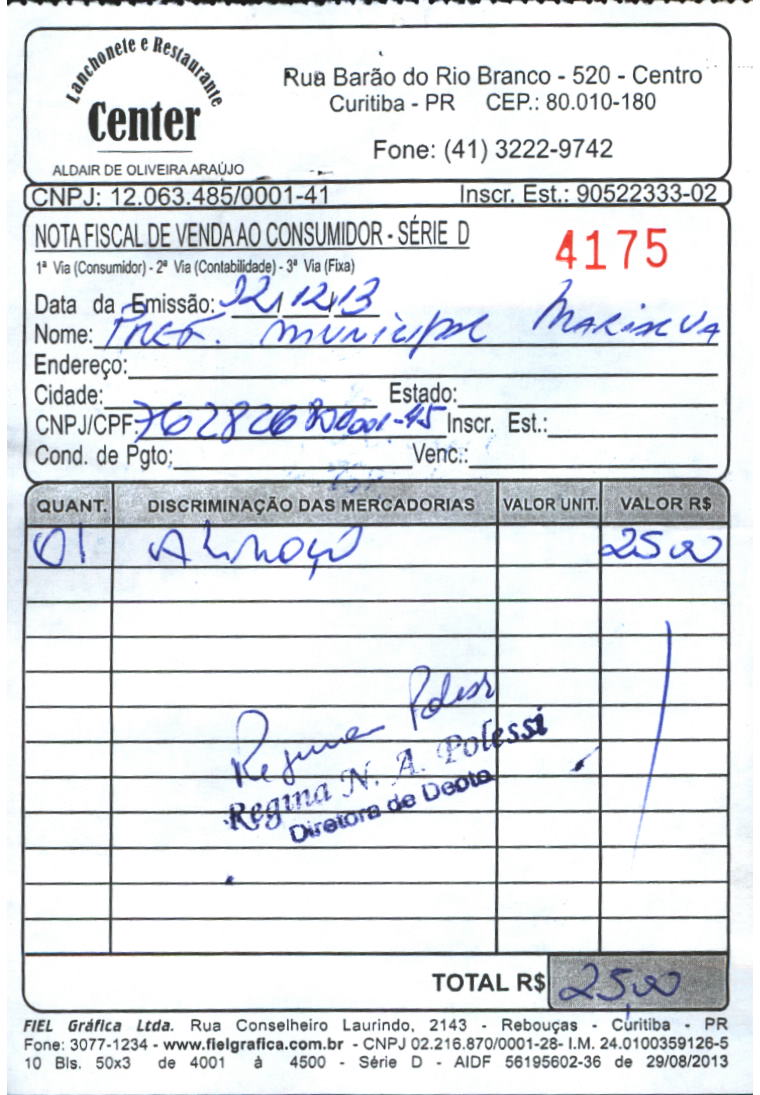 Lanchonete e Restaurante
Center
ALDAIR DE OLIVEIRA ARAÚJO
Rua Barão do Rio Branco - 520 - Centro
Curitiba - PR CEP.: 80.010-180
Fone: (41) 3222-9742
CNPJ: 12.063.485/0001-41 Inscr. Est.: 90522333-02
NOTA FISCAL DE VENDA AO CONSUMIDOR - SÉRIE D 4175
1ª Via (Consumidor) - 2ª Via (Contabilidade) - 3ª Via (Fixa)
Data da Emissão: 12/12/13
Nome: Pref. Municipal Marialva
Endereço:
Cidade: Estado:
CNPJ/CPF: 76282680/0001-45 Inscr. Est.:
Cond. de Pgto; Venc.:
QUANT. DISCRIMINAÇÃO DAS MERCADORIAS VALOR UNIT. VALOR R$
01 Almoço 25,00
Regina Polessi
Regina N. A. Polessi
Diretora de Depto
TOTAL R$ 25,00
FIEL Gráfica Ltda. Rua Conselheiro Laurindo, 2143 - Rebouças - Curitiba - PR
Fone: 3077-1234 - www.fielgrafica.com.br - CNPJ 02.216.870/0001-28- I.M. 24.0100359126-5
10 Bls. 50x3 de 4001 à 4500 - Série D - AIDF 56195602-36 de 29/08/2013